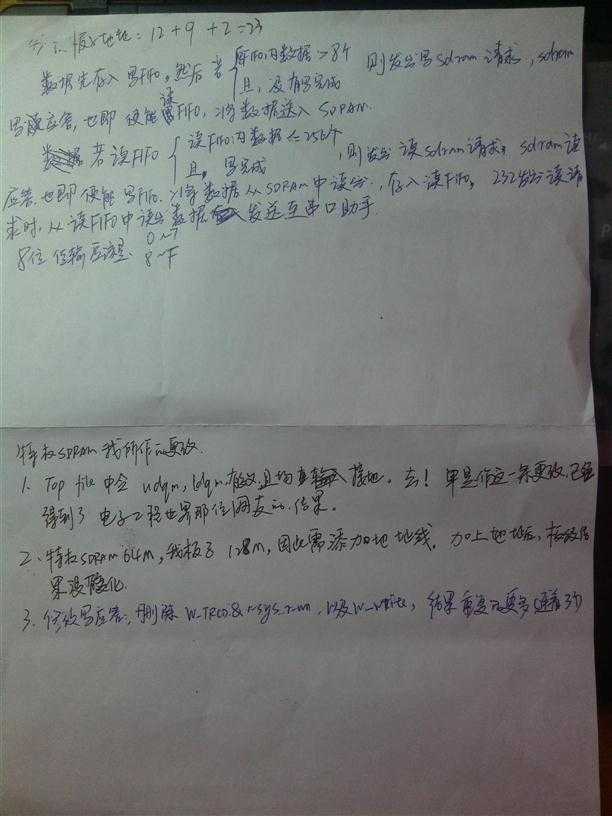 地址：12+9+2=23
数据先存入写FIFO。然后若 写FIFO内数据>8个 则发出写sdram请求，sdram
且，没有写完成
写应答，也即使能读FIFO，将数据送入SDRAM.
若读FIFO 读FIFO内数据<=256个
且，写完成 ，则发出读sdram请求，sdram读
应答，也即使能写FIFO，将数据从SDRAM中读出，存入读FIFO，232发出读请
求时，从读FIFO中读出数据发送至串口助手
0~7
8位传输
8~F
特权SDRAM我所作的更改
1. Top file中令udqm, ldqm有效，且均接地。去！单是作这一条更改，已经
得到了电子工程世界那位网友的结果。
2. 特权SDRAM 64M，我板子128M，因此需添加地址线。加上地址后，结
果没变化
3. 修改写应答，删除W_TRCD & sys_r_wn，以及W_write，结果重复